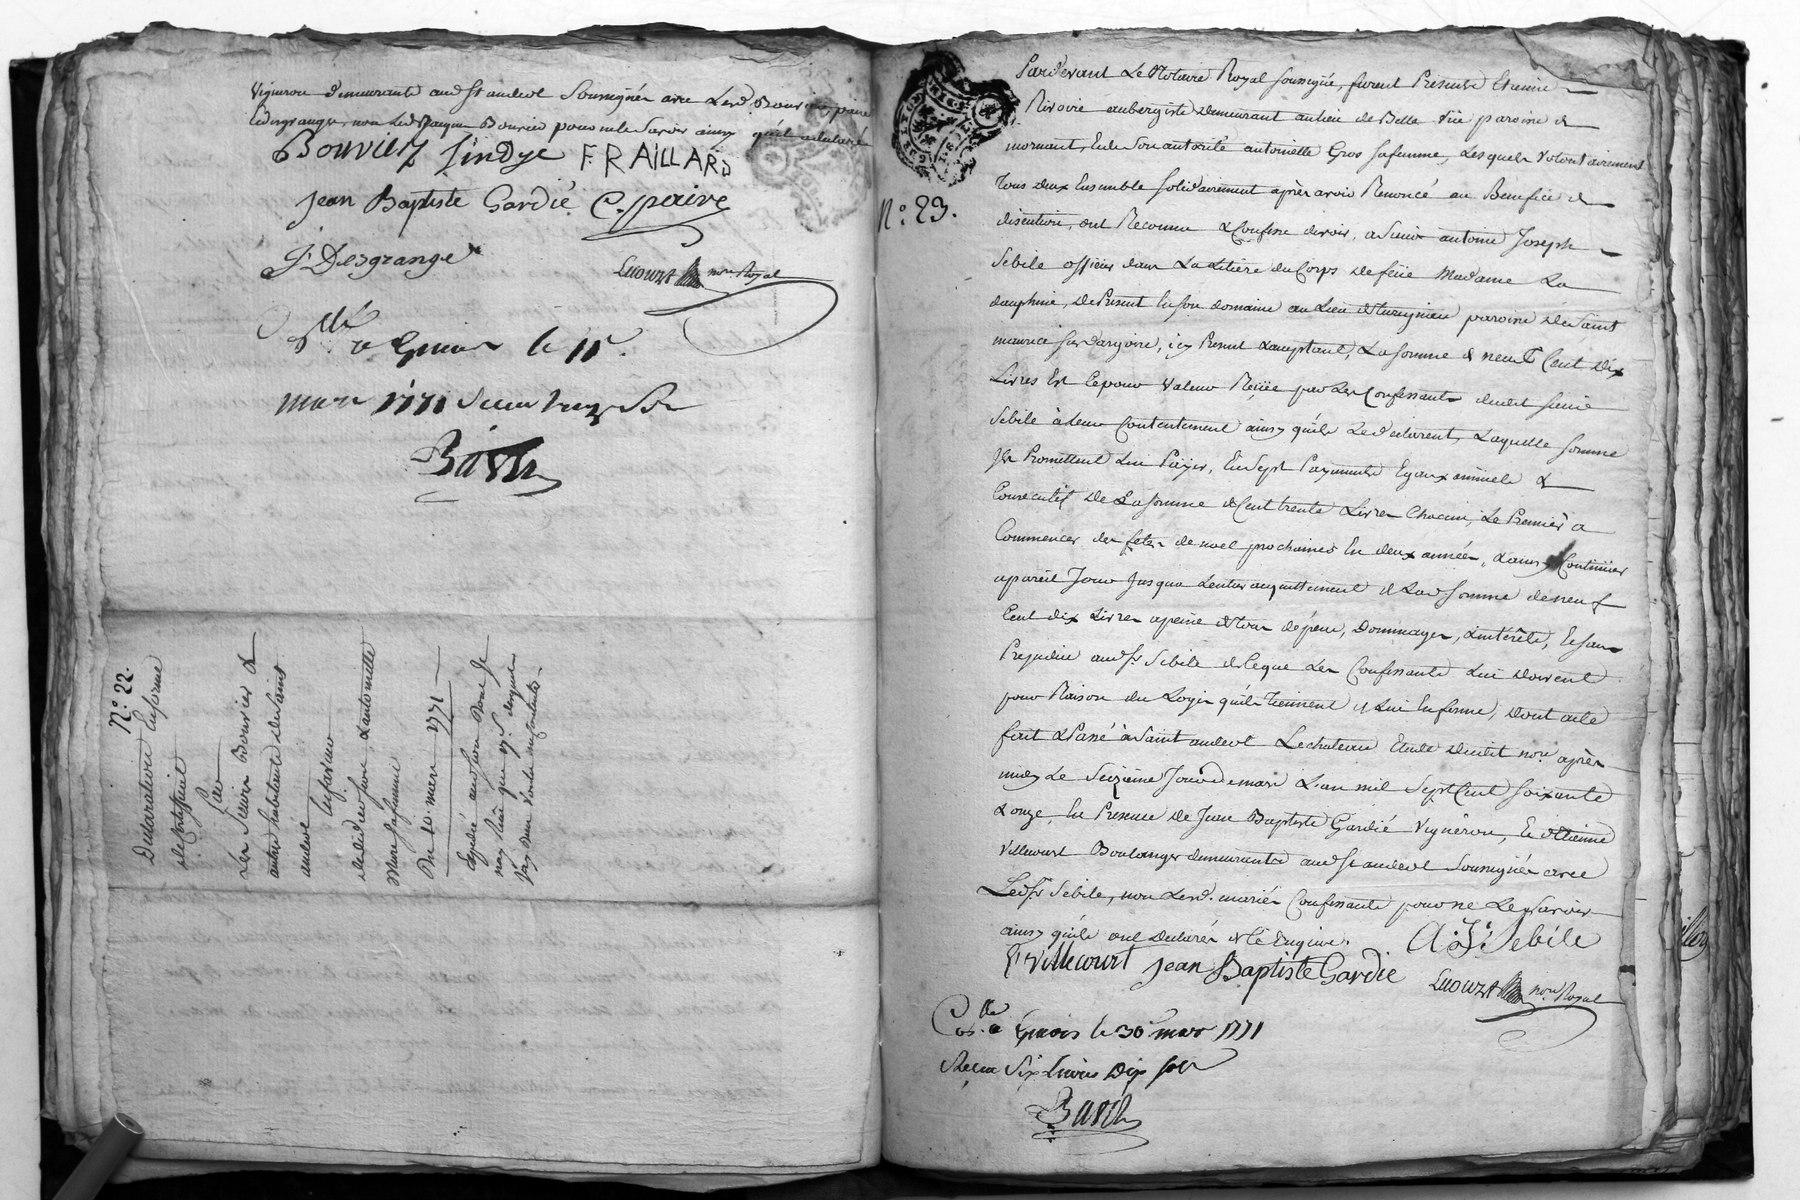 vigneron demeurants aud St andeol Soussignés avec Lesd. Bouvier, paire
Desgrange, non Led Jacques Bouvier pour ne le Savoir ainsy qu'il a declaré
Bouvier Jindye F. RAILLARD
Jean Baptiste Gardié C. paire
J Desgrange
nore Royal
Con.lle a Givors le 15
mars 1771 Recu treize Sols
Barth
N.º 22.
Declaration En forme
de Certificat
Par
Les Sieurs Bouvier &
autres habitants de Saint
andeol
En faveur
de didier favre, & antoinette
More Sa femme
Du 10. mars 1771
Expedié aud favre
N.º 23.
Pardevant Le Notaire Royal soussigné, furent Presents Etienne
Rivoire aubergiste Demeurant au lieu de Belle Vüe paroisse de
mornant, Et de Son autorité antoinette Gros sa femme, Lesquels Volontairement
Tous deux Ensemble solidairement après avoir Renoncé au Benefice de
discution, ont Reconnu & Confessé devoir, a Sieur antoine Joseph
Sebile officier dans La Litière du Corps de feüe Madame La
dauphine, De Present En son domaine au Lieu de paroisse De Saint
maurice sur dargoire, icy Present & acceptant, La somme de neuf Cent Dix
Livres Et Ce pour Valeur Reçüe par Les Confessants dudit sieur
Sebile à Leur Contentement ainsy qu'ils Le declarent, Laquelle somme
Ils Promettent Lui Païer, En Sept Payements Egaux annuels &
Consecutifs De La somme de Cent trente Livres Chacun, Le Premier a
Commencer des fetes de noel prochaines En deux années, & ainsy Continüer
a pareil Jour Jusqua L'entier acquittement de Lad somme de neuf
Cent dix Livres a peine de tous dépens, Dommages, & intérêts, Et sans
Prejudice aud Sr Sebile de Ce que Les Confessants Lui doivent
pour Raison du Loyer qu'ils Tiennent de Lui En ferme, dont acte
fait & Passé à Saint andeol Le chateau Etude dudit nore après
midy Le Seizième Jour de mars L'an mil Sept Cent soixante
& onze, En Presence De Jean Baptiste Gardié Vigneron, Et d'Etienne
Villecourt Boulanger demeurants aud St andeol Soussignés avec
Led Sr Sebile, non Lesd. mariés Confessants pour ne Le Savoir
ainsy qu'ils ont Declarés de Ce Enquis.
A: J: Sebile
E Villecourt Jean Baptiste Gardié
nore Royal
Con.lle a Givors le 30 mars 1771
Recu Six Livres Dix sols
Barth